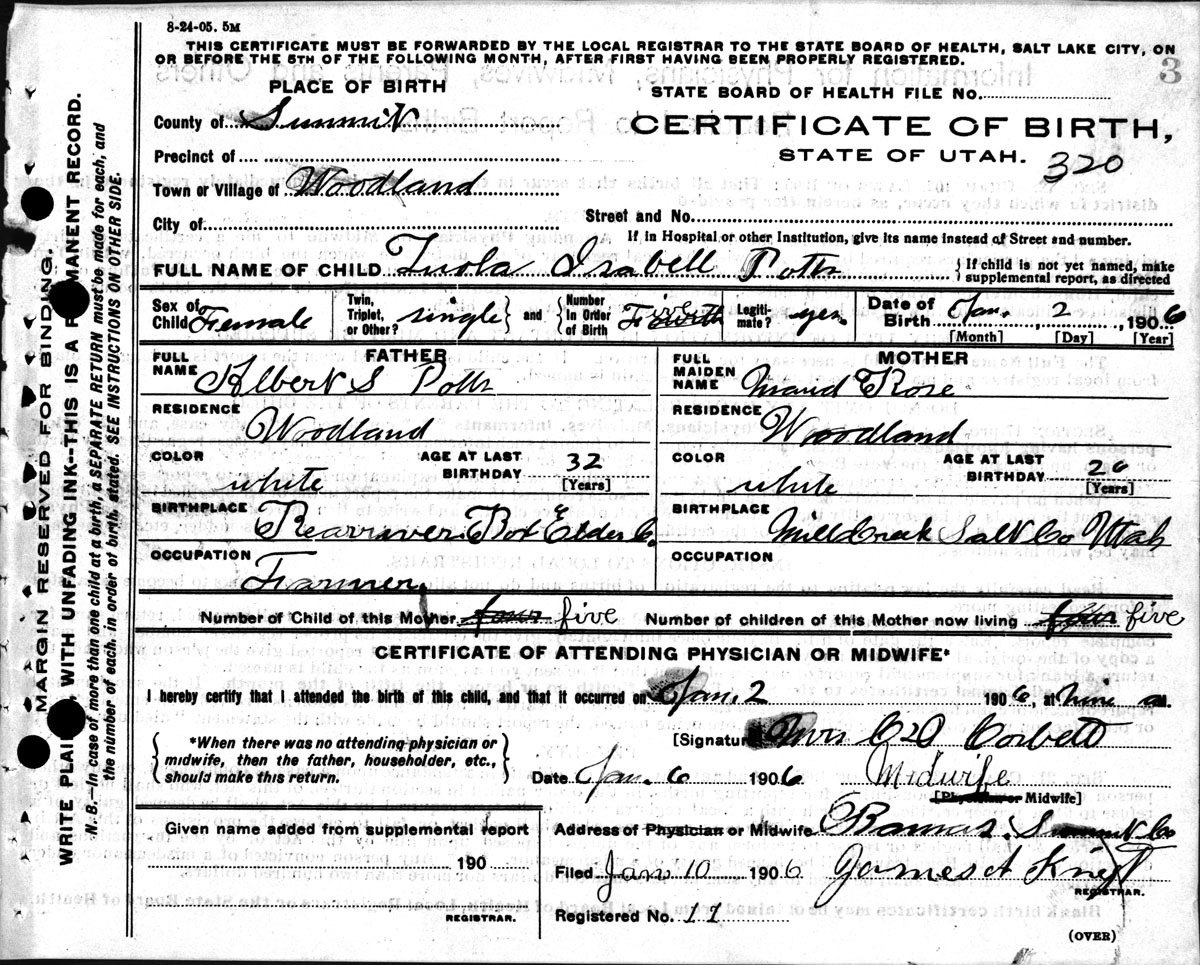 8-24-05. 5M
THIS CERTIFICATE MUST BE FORWARDED BY THE LOCAL REGISTRAR TO THE STATE BOARD OF HEALTH, SALT LAKE CITY, ON
OR BEFORE THE 5TH OF THE FOLLOWING MONTH, AFTER FIRST HAVING BEEN PROPERLY REGISTERED.
3
PLACE OF BIRTH
STATE BOARD OF HEALTH FILE No.
County of Summit
CERTIFICATE OF BIRTH,
Precinct of
STATE OF UTAH. 320
Town or Village of Woodland
City of
Street and No.
If in Hospital or other Institution, give its name instead of Street and number.
FULL NAME OF CHILD Isabell Potts { If child is not yet named, make supplemental report, as directed
Sex of Child Female Twin, Triplet, or Other? single } and { Number In Order of Birth Legiti-mate? yes Date of Birth Jan. , 2 , 1906
[Month] [Day] [Year]
FATHER
MOTHER
FULL NAME Albert S Potts
FULL MAIDEN NAME Maud Rose
RESIDENCE Woodland
RESIDENCE Woodland
COLOR white AGE AT LAST BIRTHDAY 32 [Years]
COLOR white AGE AT LAST BIRTHDAY 26 [Years]
BIRTHPLACE Bearriver Box Elder Co.
BIRTHPLACE Mill Creek Salt Co Utah
OCCUPATION Farmer
OCCUPATION
Number of Child of this Mother four five Number of children of this Mother now living four five
CERTIFICATE OF ATTENDING PHYSICIAN OR MIDWIFE*
I hereby certify that I attended the birth of this child, and that it occurred on Jan, 2 1906, at nine a M.
{ *When there was no attending physician or midwife, then the father, householder, etc., should make this return. }
[Signature] Mrs Corbett
Date Jan. 6 1906 Midwife
[Physician or Midwife]
Given name added from supplemental report
190
REGISTRAR.
Address of Physician or Midwife Summit Co
Filed Jan 10 1906 James A Knight
REGISTRAR.
Registered No. 11
(OVER)
MARGIN RESERVED FOR BINDING.
WRITE PLAINLY WITH UNFADING INK--THIS IS A PERMANENT RECORD.
N. B.—In case of more than one child at a birth, a SEPARATE RETURN must be made for each, and
the number of each, in order of birth, stated. SEE INSTRUCTIONS ON OTHER SIDE.